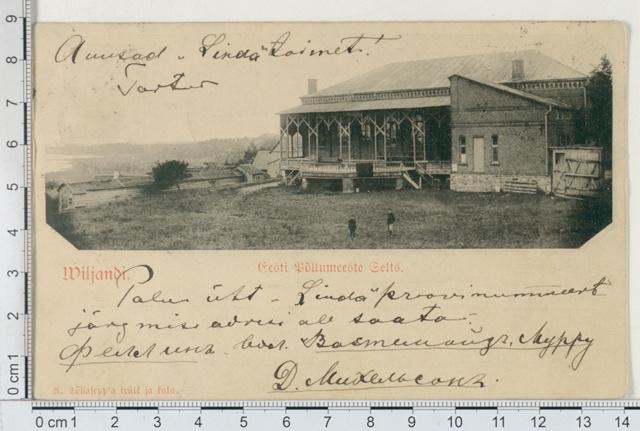 Auusad „Linda" toimet!
Tartus
Wiljandi.
Eesti Põllumeeste Selts.
Palun üht „Linda" proovinummert
järgmise adresi ale saata.
Феллинъ.
Д. Михельсонъ.
A. Tõllasepp'a trükk ja kulu.
0 cm 1 2 3 4 5 6 7 8 9
0 cm 1 2 3 4 5 6 7 8 9 10 11 12 13 14